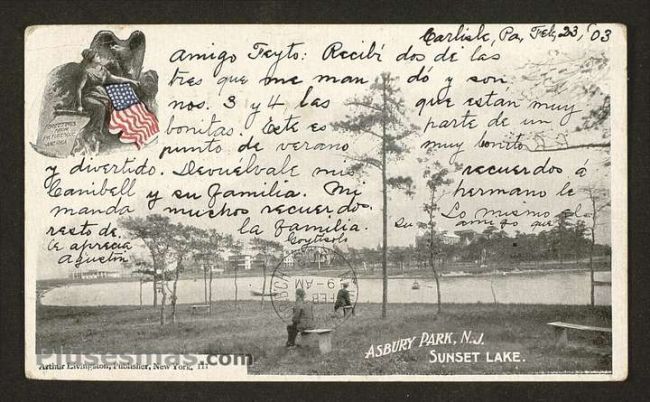 Carlisle, Pa, Feb, 23, '03
Amigo Feyto: Recibí dos de las
tres que me man dó y son
nos. 3 y 4 las que están muy
bonitas. Este es parte de un
punto de verano muy bonito
y divertido. Devuélvale mis recuerdos á
Canibell y su familia. Mi hermano le
manda muchos recuerdos. Lo mismo al
resto de la familia. Su amigo que
le aprecia
Agustín Goytisolo
GREETINGS
FROM
PICTURESQUE
AMERICA
FEB
9-AM
ASBURY PARK, N.J.
SUNSET LAKE.
Plusesmas.com
Arthur Livingston, Publisher, New York,